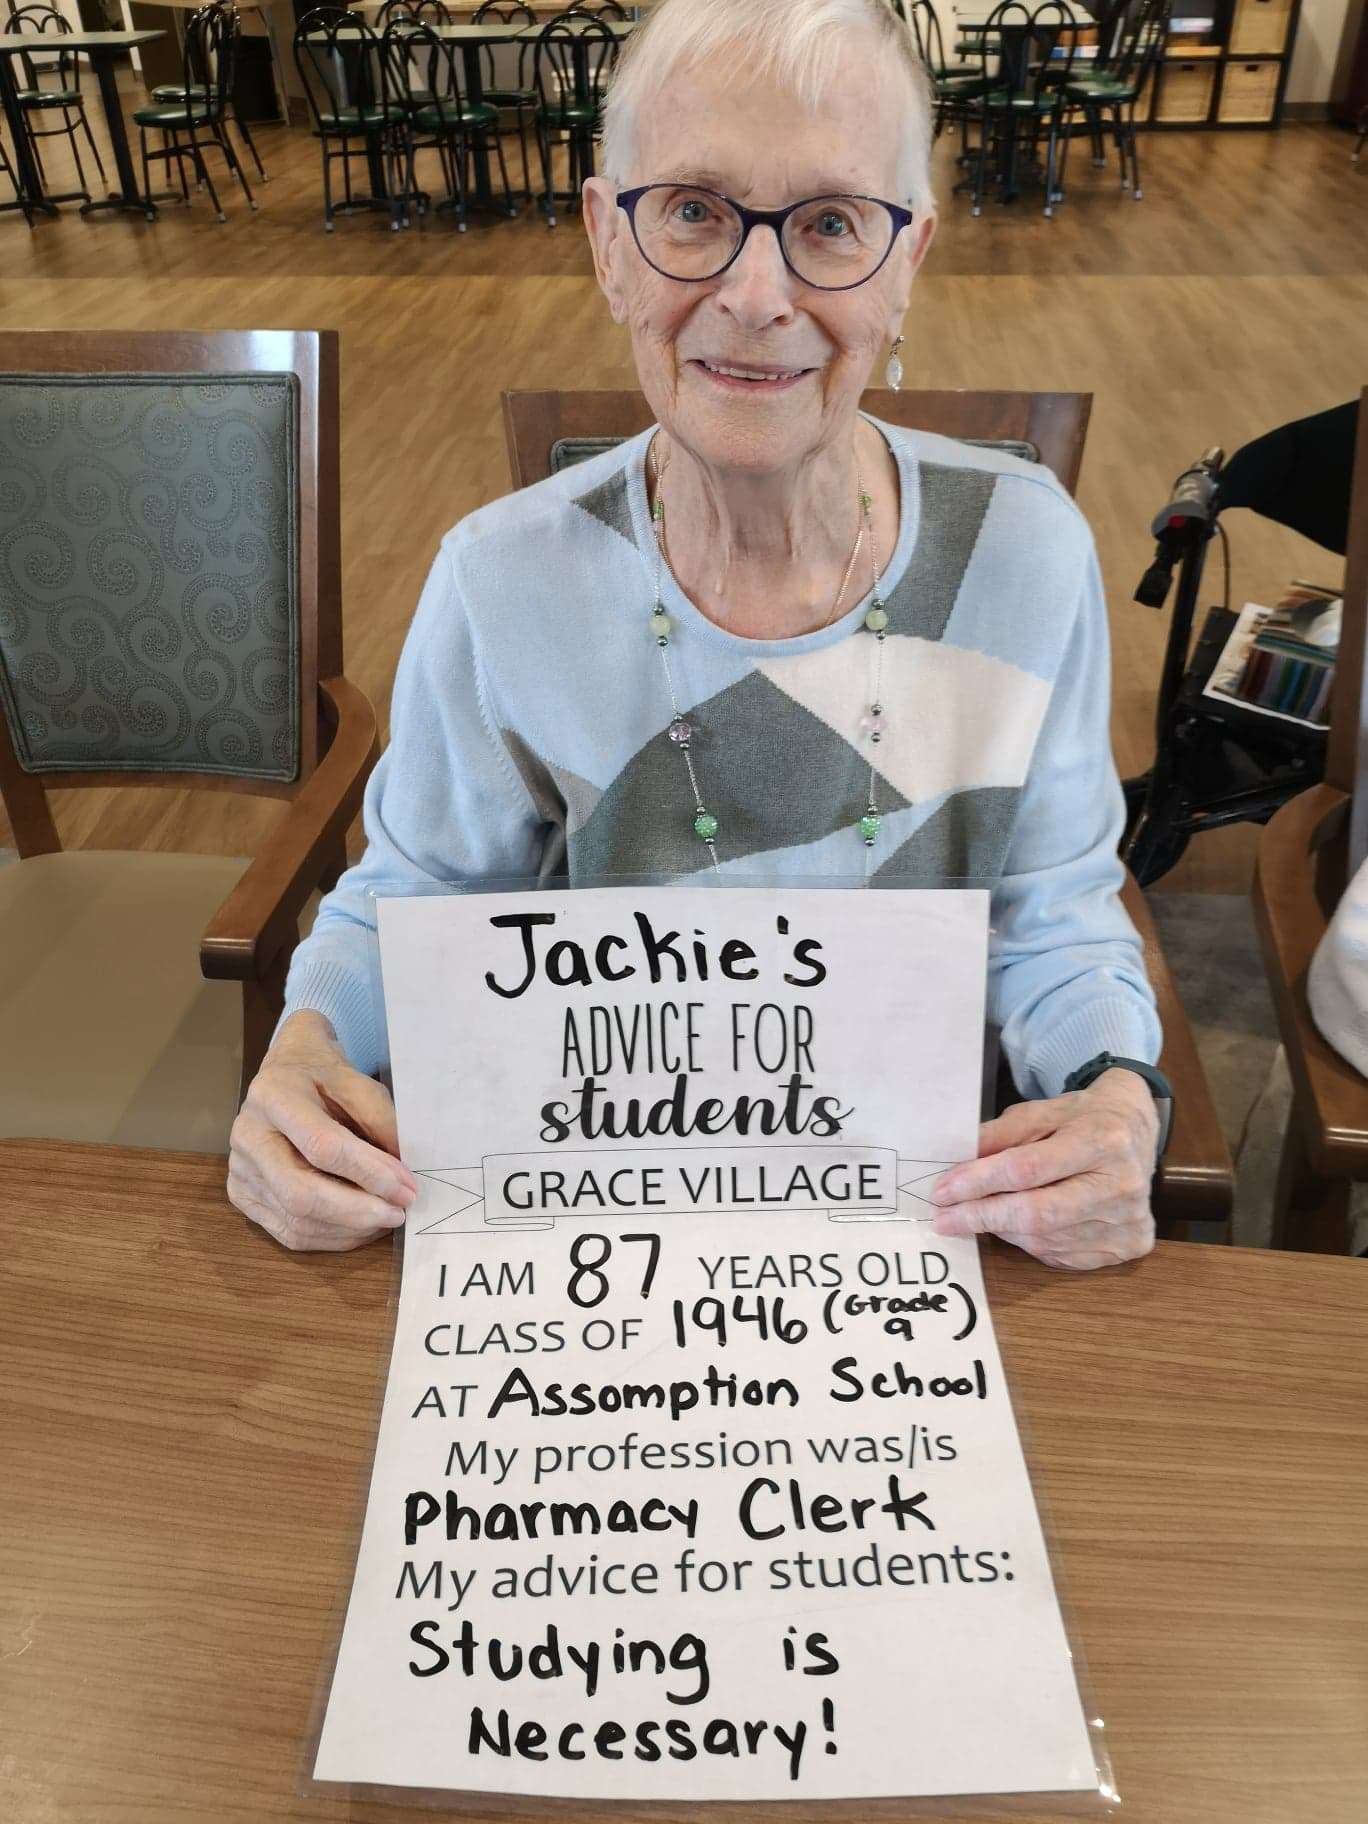 Jackie's
ADVICE FOR
students
GRACE VILLAGE
I AM 87 YEARS OLD
CLASS OF 1946 (Grade 9)
AT Assomption School
My profession was/is
Pharmacy Clerk
My advice for students:
Studying is
Necessary!